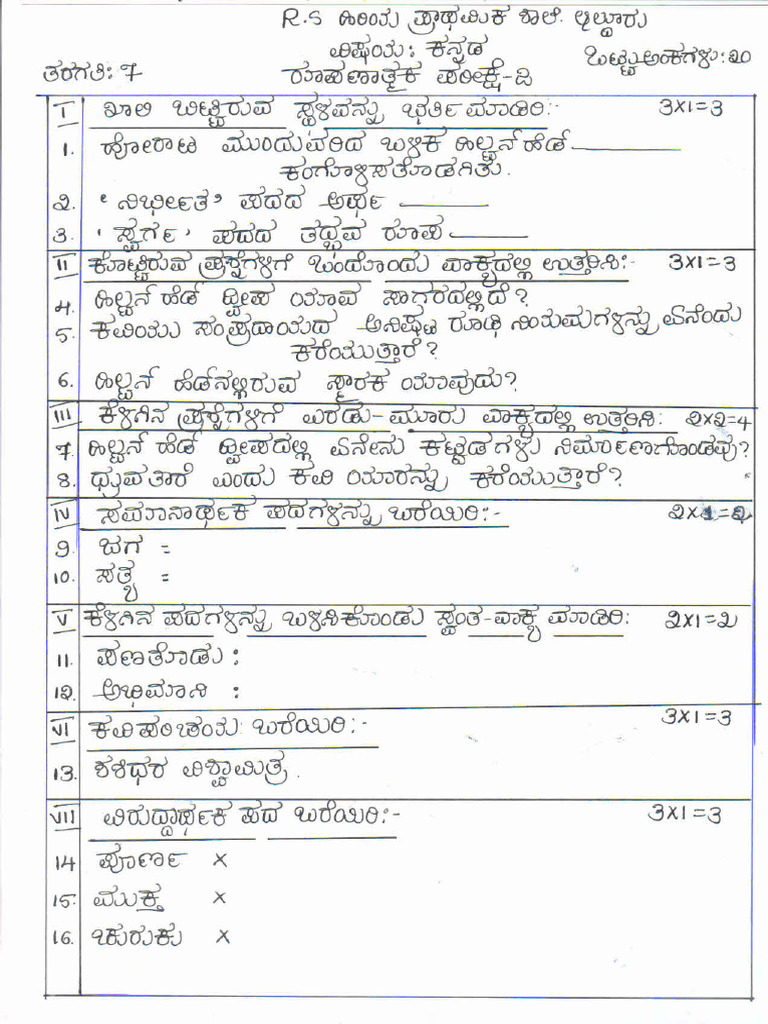 R.S ಹಿರಿಯ ಪ್ರಾಥಮಿಕ ಶಾಲೆ. ಆಲ್ದೂರು
ವಿಷಯ: ಕನ್ನಡ
ತರಗತಿ: 7 ರೂಪಣಾತ್ಮಕ ಪರೀಕ್ಷೆ-೨ ಒಟ್ಟು ಅಂಕಗಳು: ೩೦
I ಖಾಲಿ ಬಿಟ್ಟಿರುವ ಸ್ಥಳವನ್ನು ಭರ್ತಿ ಮಾಡಿರಿ:- 3x1=3
1. ಹೋರಾಟ ಮುಂದುವರಿದ ಬಳಿಕ ಹಿಲ್ಟನ್ ಹೆಡ್ ________
ಕಂಗೊಳಿಸತೊಡಗಿತು.
೨. 'ನಿರ್ಭೀತ' ಪದದ ಅರ್ಥ ________
3. 'ಸ್ವರ್ಗ' ಪದದ ತದ್ಭವ ರೂಪ ________
II ಕೊಟ್ಟಿರುವ ಪ್ರಶ್ನೆಗಳಿಗೆ ಒಂದೊಂದು ವಾಕ್ಯದಲ್ಲಿ ಉತ್ತರಿಸಿ:- 3x1=3
4. ಹಿಲ್ಟನ್ ಹೆಡ್ ದ್ವೀಪ ಯಾವ ಸಾಗರದಲ್ಲಿದೆ?
5. ಕವಿಯು ಸಂಪ್ರದಾಯದ ಅನಿಷ್ಟ ರೂಢಿ ನಿಯಮಗಳನ್ನು ಏನೆಂದು
ಕರೆಯುತ್ತಾರೆ?
6. ಹಿಲ್ಟನ್ ಹೆಡ್‌ನಲ್ಲಿರುವ ಸ್ಮಾರಕ ಯಾವುದು?
III ಕೆಳಗಿನ ಪ್ರಶ್ನೆಗಳಿಗೆ ಎರಡು-ಮೂರು ವಾಕ್ಯದಲ್ಲಿ ಉತ್ತರಿಸಿ: ೨x೨=4
7. ಹಿಲ್ಟನ್ ಹೆಡ್ ದ್ವೀಪದಲ್ಲಿ ಏನೇನು ಕಟ್ಟಡಗಳು ನಿರ್ಮಾಣಗೊಂಡವು?
8. ಧ್ರುವತಾರೆ ಎಂದು ಕವಿ ಯಾರನ್ನು ಕರೆಯುತ್ತಾರೆ?
IV ಸಮಾನಾರ್ಥಕ ಪದಗಳನ್ನು ಬರೆಯಿರಿ:- ೨x1=೨
9. ಜಗ =
10. ಸತ್ಯ =
V ಕೆಳಗಿನ ಪದಗಳನ್ನು ಬಳಸಿಕೊಂಡು ಸ್ವಂತ-ವಾಕ್ಯ ಮಾಡಿರಿ: 2x1=2
11. ಪಣತೊಡು :
1೨. ಅಭಿಮಾನಿ :
VI ಕವಿಪರಿಚಯ ಬರೆಯಿರಿ:- 3x1=3
13. ಶಶಿಧರ ವಿಶ್ವಾಮಿತ್ರ.
VII ವಿರುದ್ಧಾರ್ಥಕ ಪದ ಬರೆಯಿರಿ:- 3x1=3
14 ಪೂರ್ಣ x
15. ಮುಕ್ತ x
16. ಚುರುಕು x